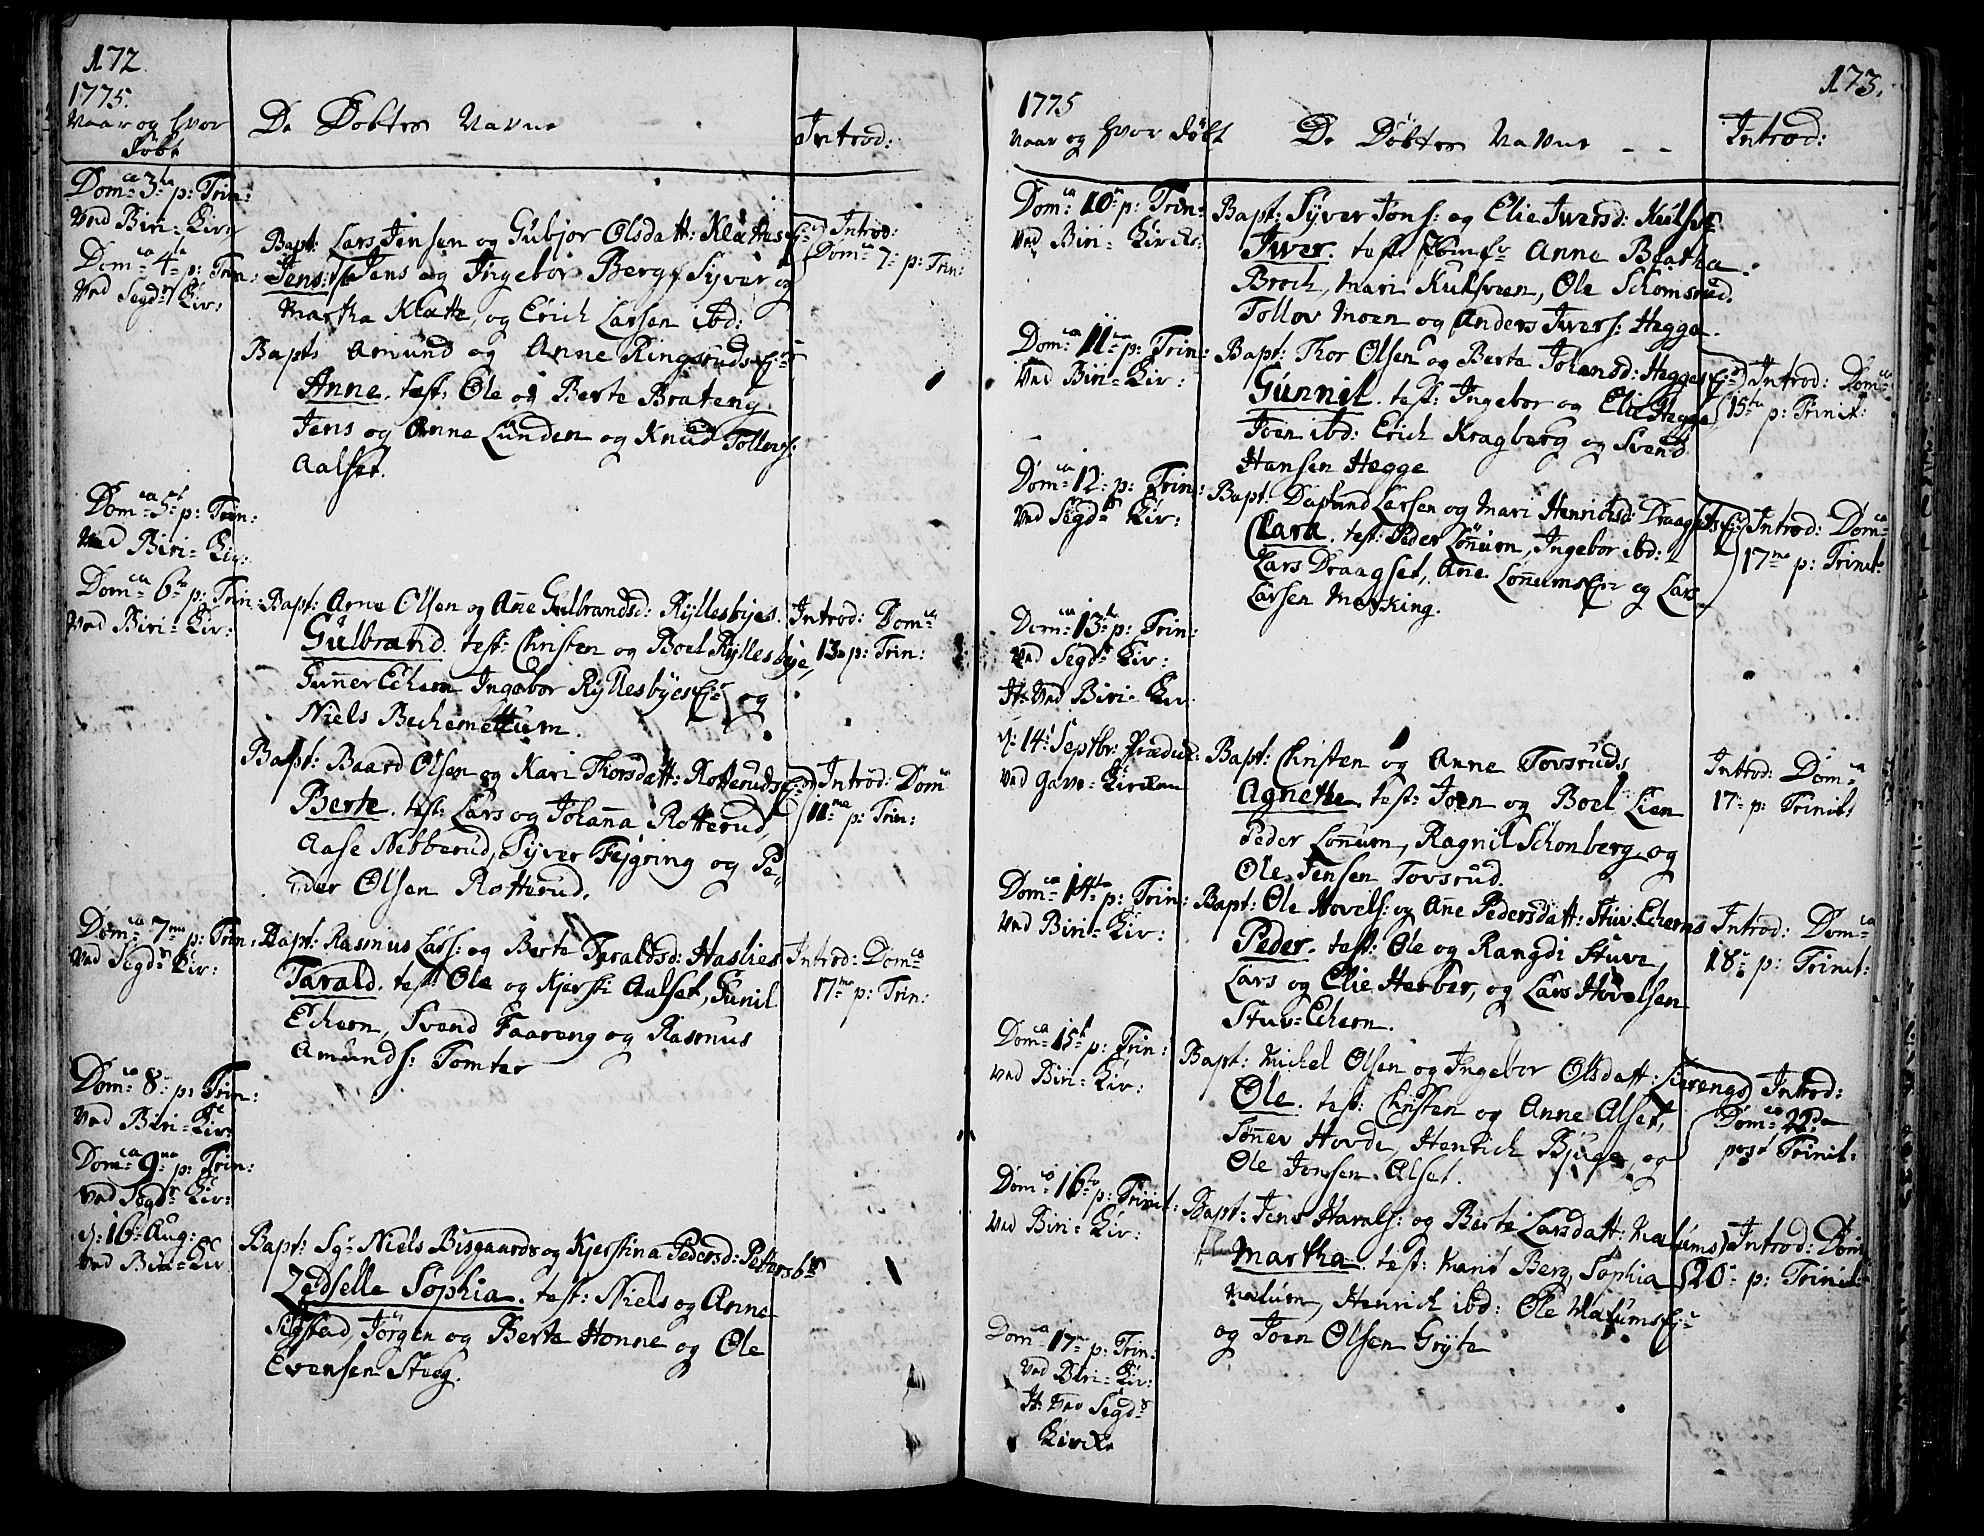 172.
1775.
Naar og hvor
døbt
De Døbtes Navne
Introd:
Dom:ca 3tia p: Trin:
ved Biri-Kir:
Dom:ca 4ta p: Trin:
ved Segd: Kir:
Bapt: Lars Jensen og Gubjor Olsdatt: Klættes Ej:
Jens: t: Jens og Ingebor Berg, Syver og
Martha Klætte, og Erich Larsen ibd:
Introd:
Dom:ca 7: p: Trin:
Bapt: Amund og Anne Ringsruds Ej:
Anne. test: Ole og Berte Brateng
Jens og Anne Lunden og Knud Tollevs:
Aalset.
Dom:ca 5t p: Trin:
ved Biri-Kir:
Dom:ca 6ta p: Trin:
ved Biri-Kir:
Bapt: Arne Olsen og Añe Gulbrandsd: Ryllesbyes.
Gulbrand. test: Christen og Boel Ryllesbye,
Guñer Echern Ingebor Ryllesbyes Ej: og
Niels Bechemellum.
Introd: Dom:ca
13 p: Trin:
Bapt: Baard Olsen og Kari Thorsdatt: Rotteruds Ej:
Berte. test: Lars og Johaña Rotterud,
Aase Nebberud, Syver Fejgring og Pe-
der Olsen Rotterud.
Introd: Dom:ca
11ma p: Trin:
Dom:ca 7ma p: Trin:
ved Segd: Kir:
Bapt: Rasmus Lars: og Berte Taraldsd: Haslies
Tarald. test: Ole og Kjersti Aalset, Gunil
Echern, Svend Faareng og Rasmus
Amunds: Tomter
Introd: Dom:ca
17ma p: Trin:
Dom:ca 8: p: Trin:
ved Biri-Kir:
Dom:ca 9na p: Trin:
ved Segd: Kir:
d: 16: Aug:
ved Biri-Kir
Bapt: Sr Niels Bisgaards og Kjerstina Pedersd: Petersb:
Zedselle Sophia. test: Niels og Anne
Sigstad, Jörgen og Berte Honne og Ole
Evensen Stueg.
173.
1775
Naar og hvor døbt
De Döbtes Navne - -
Introd:
Dom:ca 10: p: Trin:
ved Biri-Kirke:
Bapt: Syver Jons: og Elie Iversd:
Iver. test: Anne Beatha
Broch, Mari Kulsveen, Ole Schomsrud,
Tollov Moen og Anders Ivers: Hegge.
Dom:ca 11ma p: Trin:
ved Biri-Kir:
Bapt: Thor Olsen og Berte Johansd: Hegges Ej:
Gunnil. test: Ingebor og Elie Hegge,
Joen ibd: Erich Kragberg og Svend
Hansen Hegge
Introd: Dom:ca
15ta p: Trinit:
Dom:ca 12: p: Trin:
ved Segd: Kir:
Bapt: Dafind Larsen og Mari Henrichsd: Draagsets Ej:
Clara. test: Peder Loñum, Ingebor ibd:
Lars Draagset, Añe Loñums Ej: og Lars
Larsen Morking.
Introd: Dom:ca
17ma p: Trinit:
Dom:ca 13t p: Trin:
ved Segd: Kir:
It: ved Biri-Kir.
d: 14: Septbr: Prædick:
ved Gave-Kirken
Bapt: Christen og Anne Tovsruds
Agnethe. test: Joen og Boel Lien
Peder Loñum, Ragnil Schonberg, og
Ole Jensen Tovsrud.
Introd: Dom:ca
17: p: Trinit:
Dom:ca 14ta p: Trin:
ved Biri-Kir:
Bapt: Ole Hovels: og Añe Pedersdatt: Stuv-Echerns
Peder. test: Ole og Rangdi Stuve,
Lars og Elie Herber, og Lars Hovelsen
Stuv-Echern.
Introd: Dom:ca
18: p: Trinit:
Dom:ca 15t p: Trin:
ved Biri-Kir:
Bapt: Michel Olsen og Ingebor Olsdatt: Lierengs
Ole. test: Christen og Anne Alset,
Söñer Hovde, Henrich Bjuge, og
Ole Jonsen Alset.
Introd:
Dom:ca 22da
post Trinit:
Dom:ca 16ta p: Trinit:
ved Biri-Kir:
Bapt: Jens Harals: og Berte Larsdatt: Nalums
Martha. test: Mari Berg, Sophia
Nalum, Henrich ibd: Ole Nalums Ej:
og Joen Olsen Gryte
Introd: Dom:
20: p: Trinit:
Dom:ca 17: p: Trin:
ved Biri-Kir:
It: ved Segd:
Kirke